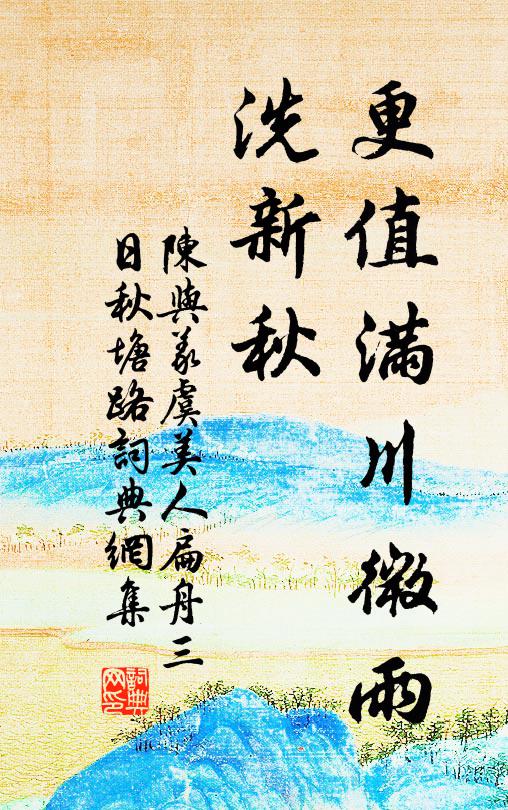 更值滿川微雨
洗新秋
陳與義虞美人扁舟三
日秋塘路詞典網集
詞典
网印